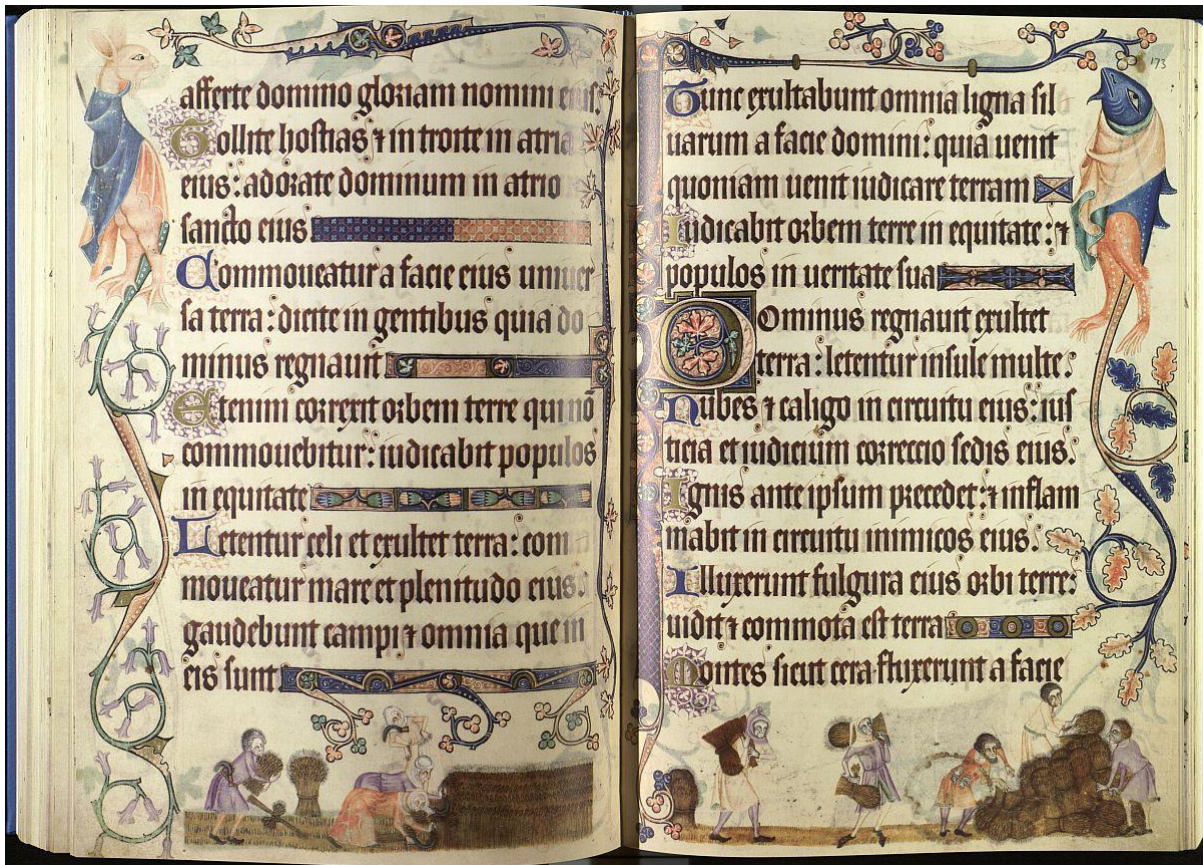 afferte domino gloriam nomini eius.
Tollite hostias ⁊ in troite in atria
eius: adorate dominum in atrio
sancto eius
Commoueatur a facie eius uniuer
sa terra: dicite in gentibus quia do
minus regnauit
Etenim correxit orbem terre qui nō
commouebitur: iudicabit populos
in equitate
Letentur celi et exultet terra: com
moueatur mare et plenitudo eius.
gaudebunt campi ⁊ omnia que in
eis sunt
173
Tunc exultabunt omnia ligna sil
uarum a facie domini: quia uenit
quoniam uenit iudicare terram
Iudicabit orbem terre in equitate: ⁊
populos in ueritate sua
Dominus regnauit exultet
terra: letentur insule multe.
Nubes ⁊ caligo in circuitu eius: ius
ticia et iudicium correccio sedis eius.
Ignis ante ipsum precedet: ⁊ inflam
mabit in circuitu inimicos eius.
Illuxerunt fulgura eius orbi terre:
uidit ⁊ commota est terra
Montes sicut cera fluxerunt a facie